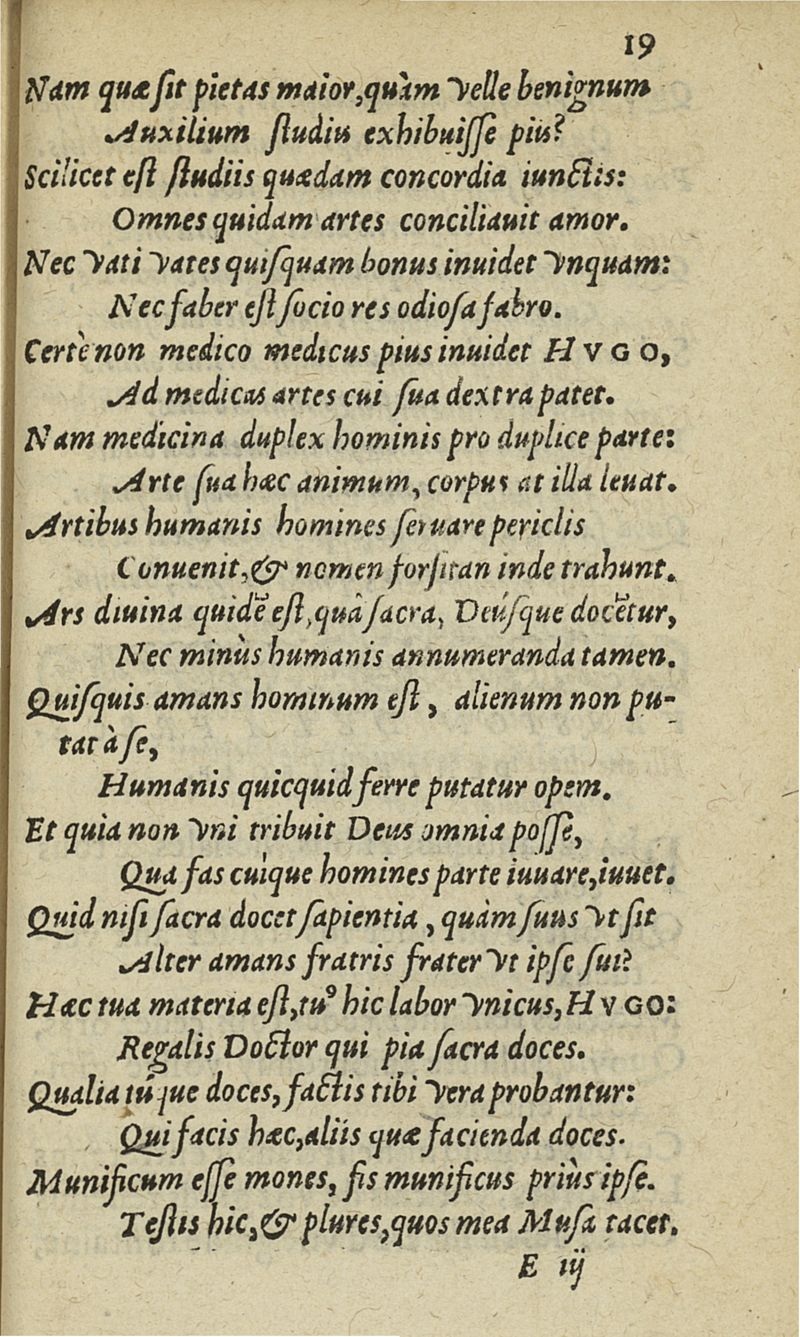 19
Nam quæ sit pietas maior, quàm velle benignum
Auxilium studiis exhibuisse piis?
Scilicet est studiis quædam concordia iunctis:
Omnes quidam artes conciliauit amor.
Nec vati vates quisquam bonus inuidet vnquam:
Nec faber est socio res odiosa fabro.
Certè non medico medicus pius inuidet HVGO,
Ad medicas artes cui sua dextra patet.
Nam medicina duplex hominis pro duplice parte:
Arte sua hæc animum, corpus at illa leuat.
Artibus humanis homines seruare periclis
Conuenit, & nomen forsitan inde trahunt.
Ars diuina quidẽ est, quâ sacra, Deúsque docẽtur,
Nec minùs humanis annumeranda tamen.
Quisquis amans hominum est, alienum non pu-
tat à se,
Humanis quicquid ferre putatur opem.
Et quia non vni tribuit Deus omnia posse,
Qua fas cuique homines parte iuuare, iuuet.
Quid nisi sacra docet sapientia, quàm suus vt sit
Alter amans fratris frater vt ipse sui?
Hæc tua materia est, tuꝰ hic labor vnicus, HVGO:
Regalis Doctor qui pia sacra doces.
Qualia túque doces, factis tibi vera probantur:
Qui facis hæc, aliis quæ facienda doces.
Munificum esse mones, sis munificus priùs ipse.
Testis hic, & plures, quos mea Musa tacet.
E iij